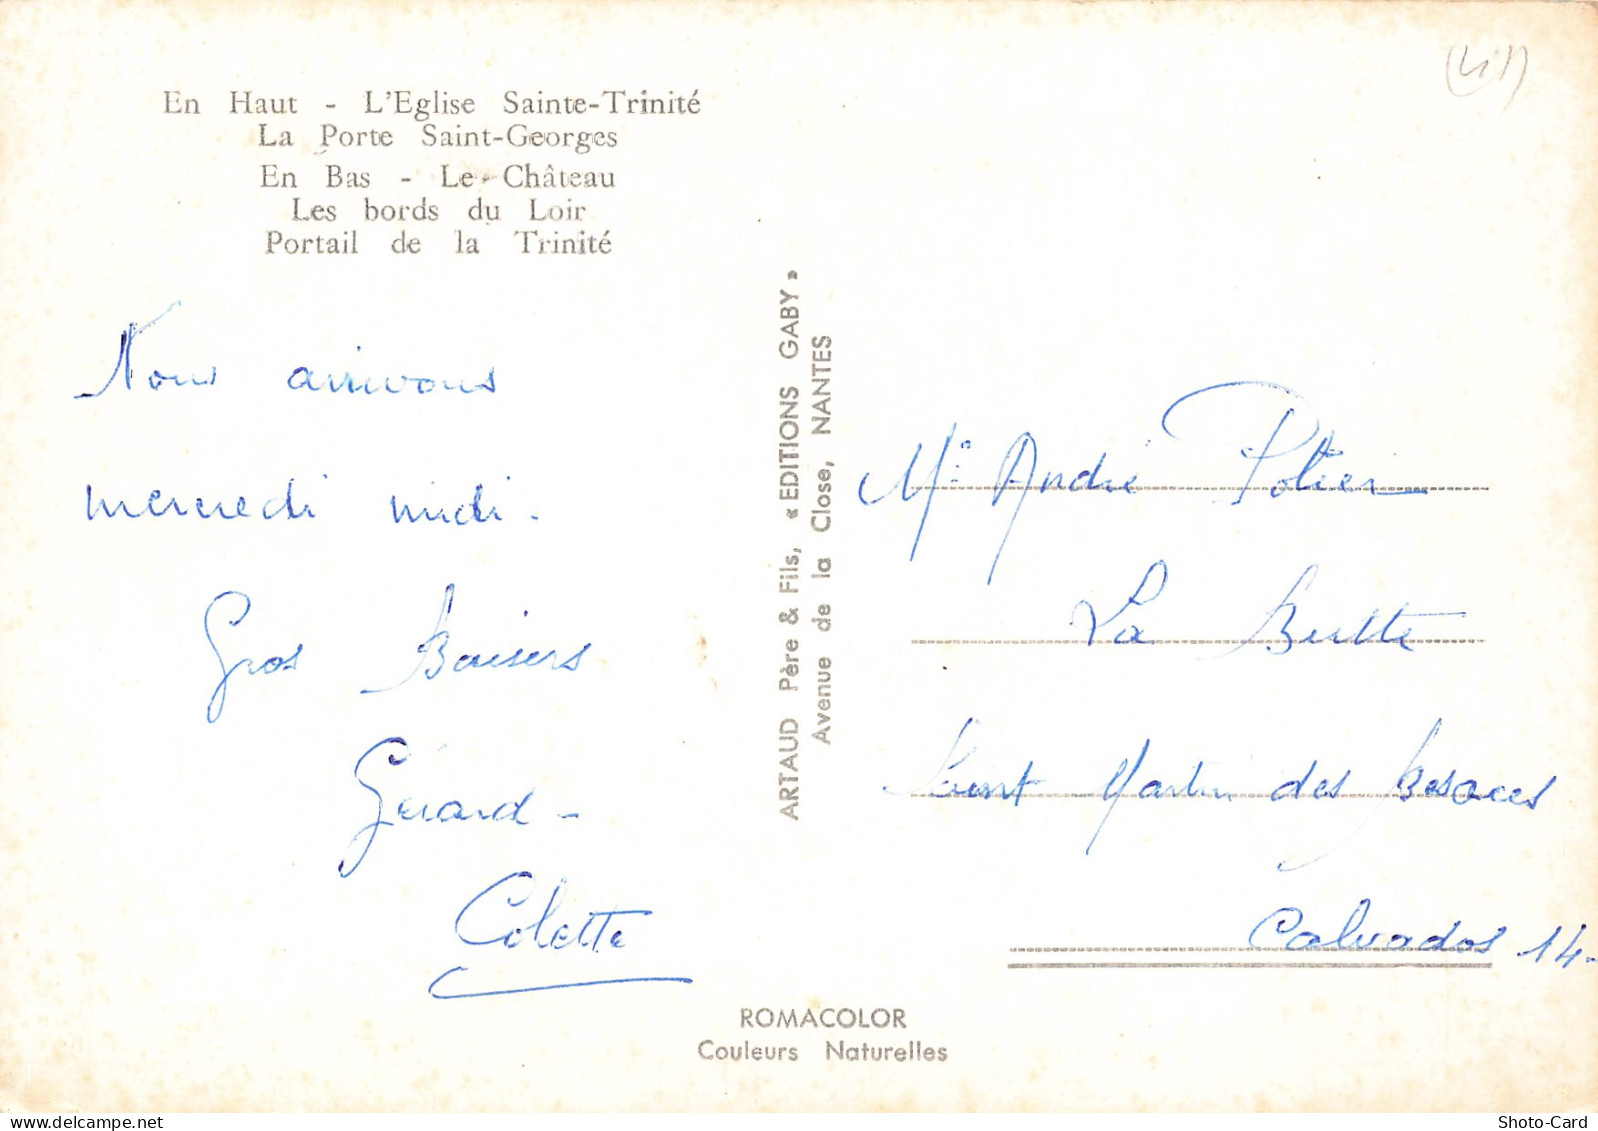 En Haut - L'Eglise Sainte-Trinité
La Porte Saint-Georges
En Bas - Le Château
Les bords du Loir
Portail de la Trinité
Nous arrivons
mercredi midi.
Gros Baisers
Gérard -
Colette
ARTAUD Père & Fils, « EDITIONS GABY »
Avenue de la Close, NANTES
Mr André Potier
La Butte
Saint Martin des Besaces
Calvados 14-
ROMACOLOR
Couleurs Naturelles
Shoto-Card